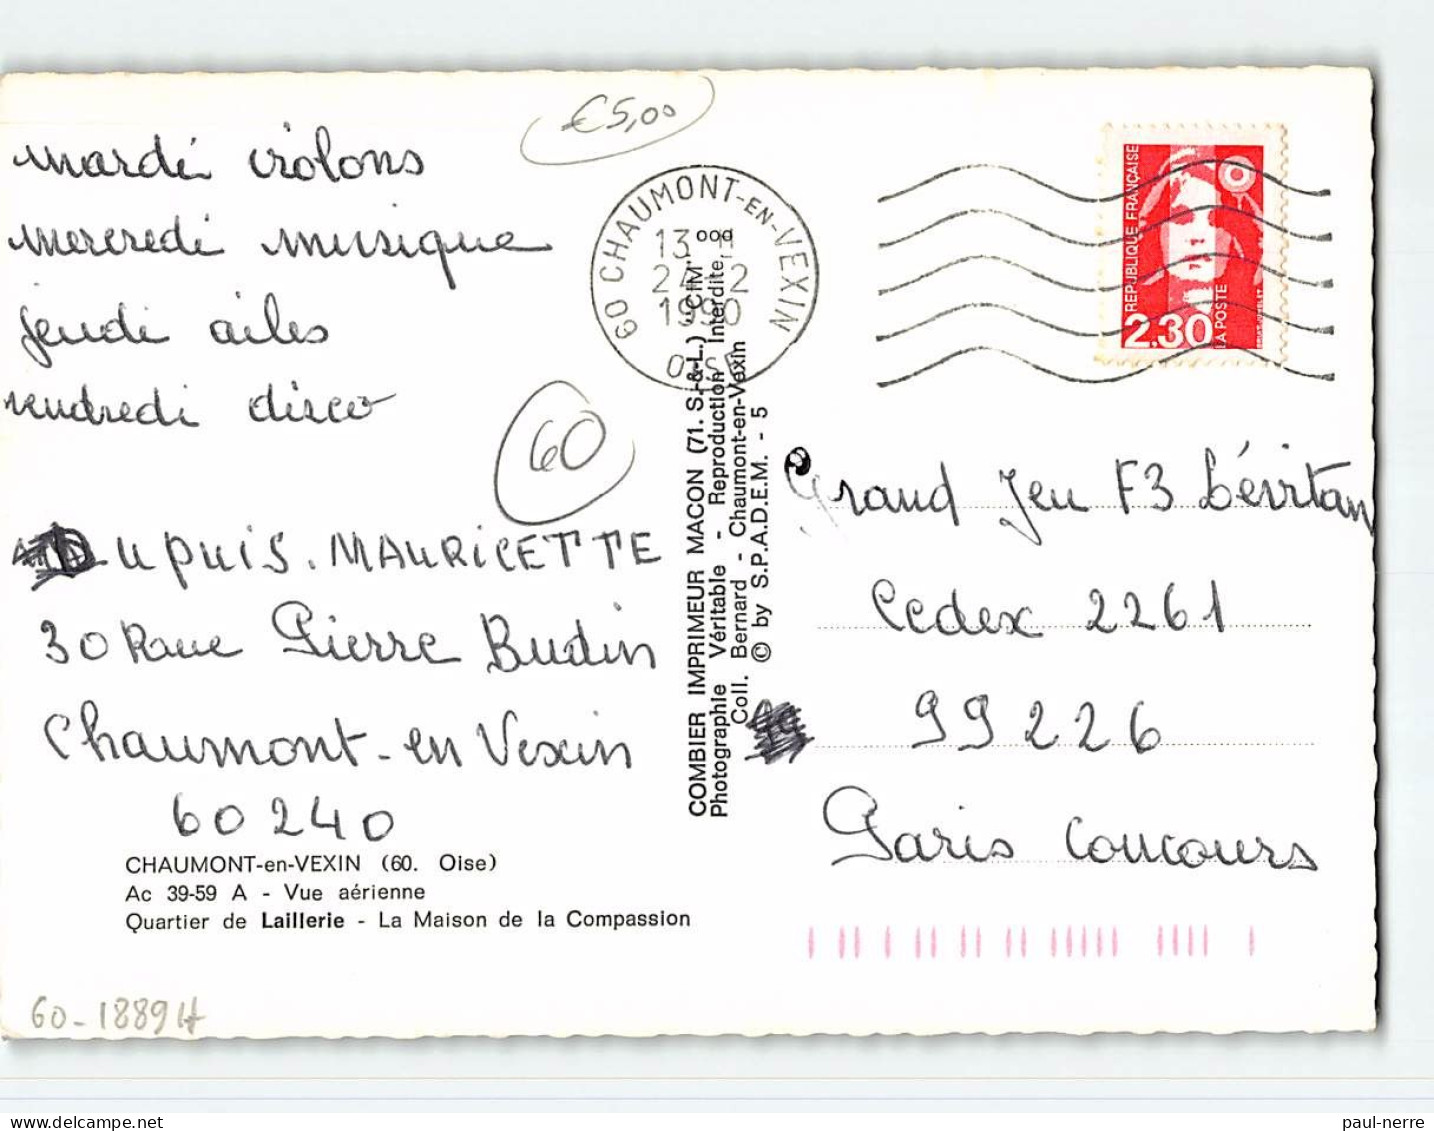 €5,00
mardi violons
mercredi musique
jeudi ailes
vendredi disco
60
Dupuis. MAURICETTE
30 Rue Pierre Budin
Chaumont-en Vexin
60240
CHAUMONT-en-VEXIN (60. Oise)
Ac 39-59 A - Vue aérienne
Quartier de Laillerie - La Maison de la Compassion
60-18894
60 CHAUMONT-EN-VEXIN
13 H
1990
OISE
COMBIER IMPRIMEUR MACON (71. S.-&-L.) "CIM"
Photographie Véritable - Reproduction Interdite
Coll. Bernard - Chaumont-en-Vexin
© by S.P.A.D.E.M. - 5
REPUBLIQUE FRANÇAISE
2,30
LA POSTE
Grand Jeu F3 Lévitan
Cedex 2261
99226
Paris Concours
paul-nerre